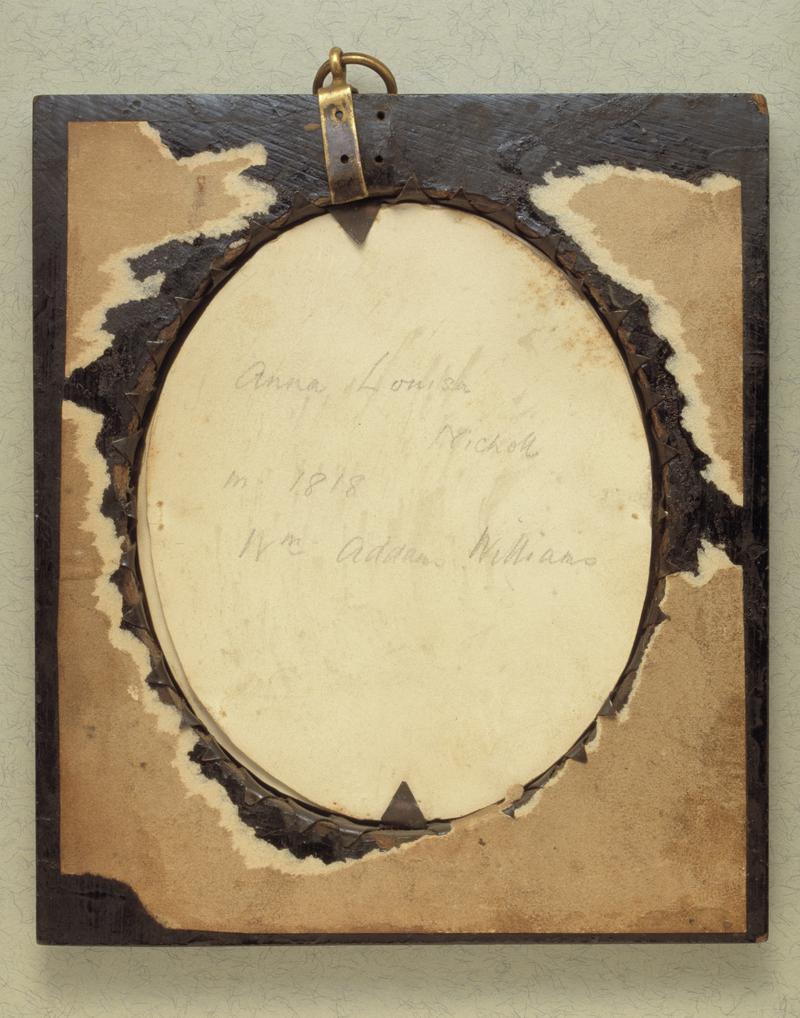 Anna Louisa
Nicholl
m. 1818
Wm Addams Williams